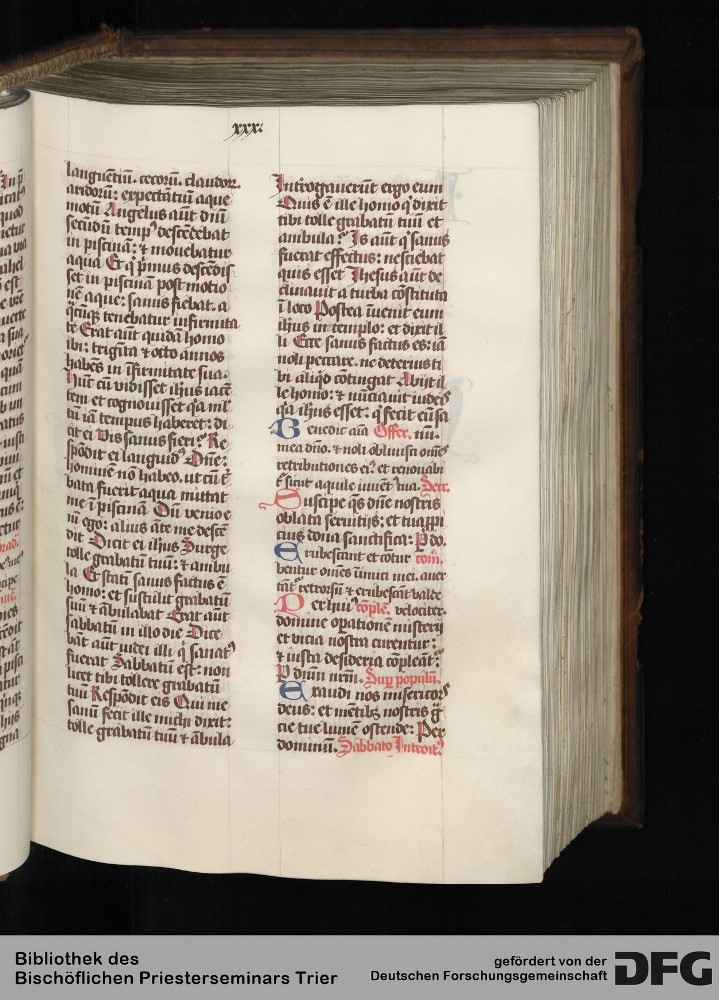 xxx.
languētiū. cecorū. claudorꝝ.
aridorū: expectātiū aque
motū Angelus aūt dnī
secūdū tempꝰ descēdebat
in piscinā: ⁊ mouebatur
aqua Et q̇ pͥmus descēdis
set in piscinā post motio
nē aque: sanus fiebat. a
tenebatur infirmita
te Erat aūt quidā homo
ibi: trigīta ⁊ octo annos
habēs in īfirmitate sua.
Hunc cū vidisset ihꝰs iacē
tem et cognouisset qa ml
tū iā tempus haberet: di
cit ei Vis sanus fieri? Re
spōdit ei languidꝰ Dn̄e:
hominē nō habeo. ut cū t᷑
bata fuerit aqua mittat
me ī piscinā Dū venio e
nī ego: alius āte me descē
dit Dicit ei ihꝰs Surge
tolle grabatū tuū: ⁊ ambu
la Et stati sanus factus ē
homo: et sustulit grabatū
suū ⁊ ābulabat Erat aūt
sabbatū in illo die Dice
bāt aūt iudei illi q̇ sanatꝰ
fuerat Sabbatū est: non
licet tibi tollere grabatū
tuū Respōdit eis Qui me
sanū fecit ille michi dixit:
tolle grabatū tuū ⁊ ābula
Introgauerūt ergo eum
Quis ē ille homo q̇ dixit
tibi tolle grabatū tuū et
ambula? Is aūt q̇ sanus
fuerat effectus: nesciebat
quis esset Ihesus aūt de
clinauit a turba cōstituta
ī loco Postea īuenit eum
ihꝰs in templo: et dixit il
li Ecce sanus factus es: iā
noli peccare. ne deterius ti
bi aliqd cōtingat Abijt il
le homo: ⁊ nūciauit iudeis
qa ihꝰs esset: q̇ fecit eū sa
Benedic aīa Offer. nū.
mea dn̄o. ⁊ noli obliuisci om̄es
retributiones eiꝰ. et renouabi
t᷑ sicut aquile iuuētꝰ tua. Secr.
Suscipe qs dn̄e nostris
oblata seruitijs: et tua ꝓpi
cius dona sanctifica: P do.
Erubescant et cōtur com̄.
bentur om̄es inimici mei. auer
tāt᷑ retrorsū ⁊ erubescāt valde
Per huiꝰ cōple. velociter.
domine oꝑationē misterij
et vicia nostra curentur:
⁊ iusta desideria cōpleāt᷑:
P dnm nrm. Sup populū.
Exaudi nos misericors
deus: et mētibꝫ nostris g̃
cie tue lumē ostende: Per
dominū. Sabbato Introitꝰ
Bibliothek des
Bischöflichen Priesterseminars Trier
gefördert von der
Deutschen Forschungsgemeinschaft
DFG